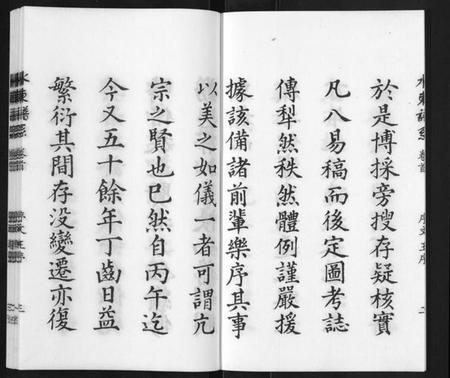 於是博採旁搜存疑核實
凡八易稿而後定圖考誌
傳犁然秩然體例謹嚴援
據該備諸前輩樂序其事
以美之如儀一者可謂亢
宗之賢也已然自丙午迄
今又五十餘年丁齒日益
繁衍其間存没變遷亦復